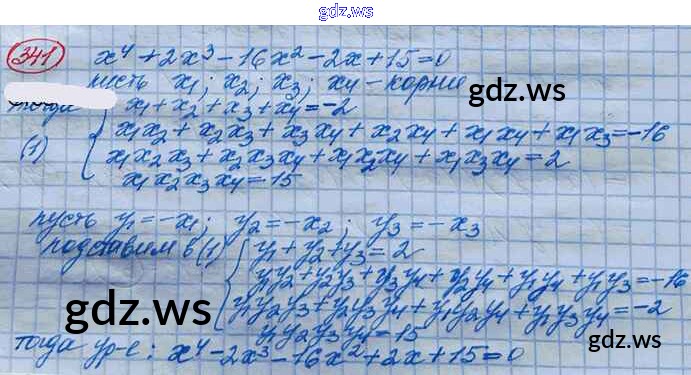 gdz.ws
341 x⁴ + 2x³ - 16x² - 2x + 15 = 0
пусть x₁; x₂; x₃; x₄ - корни
gdz.ws
тогда x₁ + x₂ + x₃ + x₄ = -2
x₁x₂ + x₂x₃ + x₃x₄ + x₂x₄ + x₁x₄ + x₁x₃ = -16
(1) x₁x₂x₃ + x₂x₃x₄ + x₁x₂x₄ + x₁x₃x₄ = 2
x₁x₂x₃x₄ = 15
пусть y₁ = -x₁; y₂ = -x₂; y₃ = -x₃
подставим в (1) y₁ + y₂ + y₃ = 2
y₁y₂ + y₂y₃ + y₃y₄ + y₂y₄ + y₁y₄ + y₁y₃ = -16
gdz.ws
y₁y₂y₃ + y₂y₃y₄ + y₁y₂y₄ + y₁y₃y₄ = -2
y₁y₂y₃y₄ = 15
gdz.ws
тогда ур-е: x⁴ - 2x³ - 16x² + 2x + 15 = 0